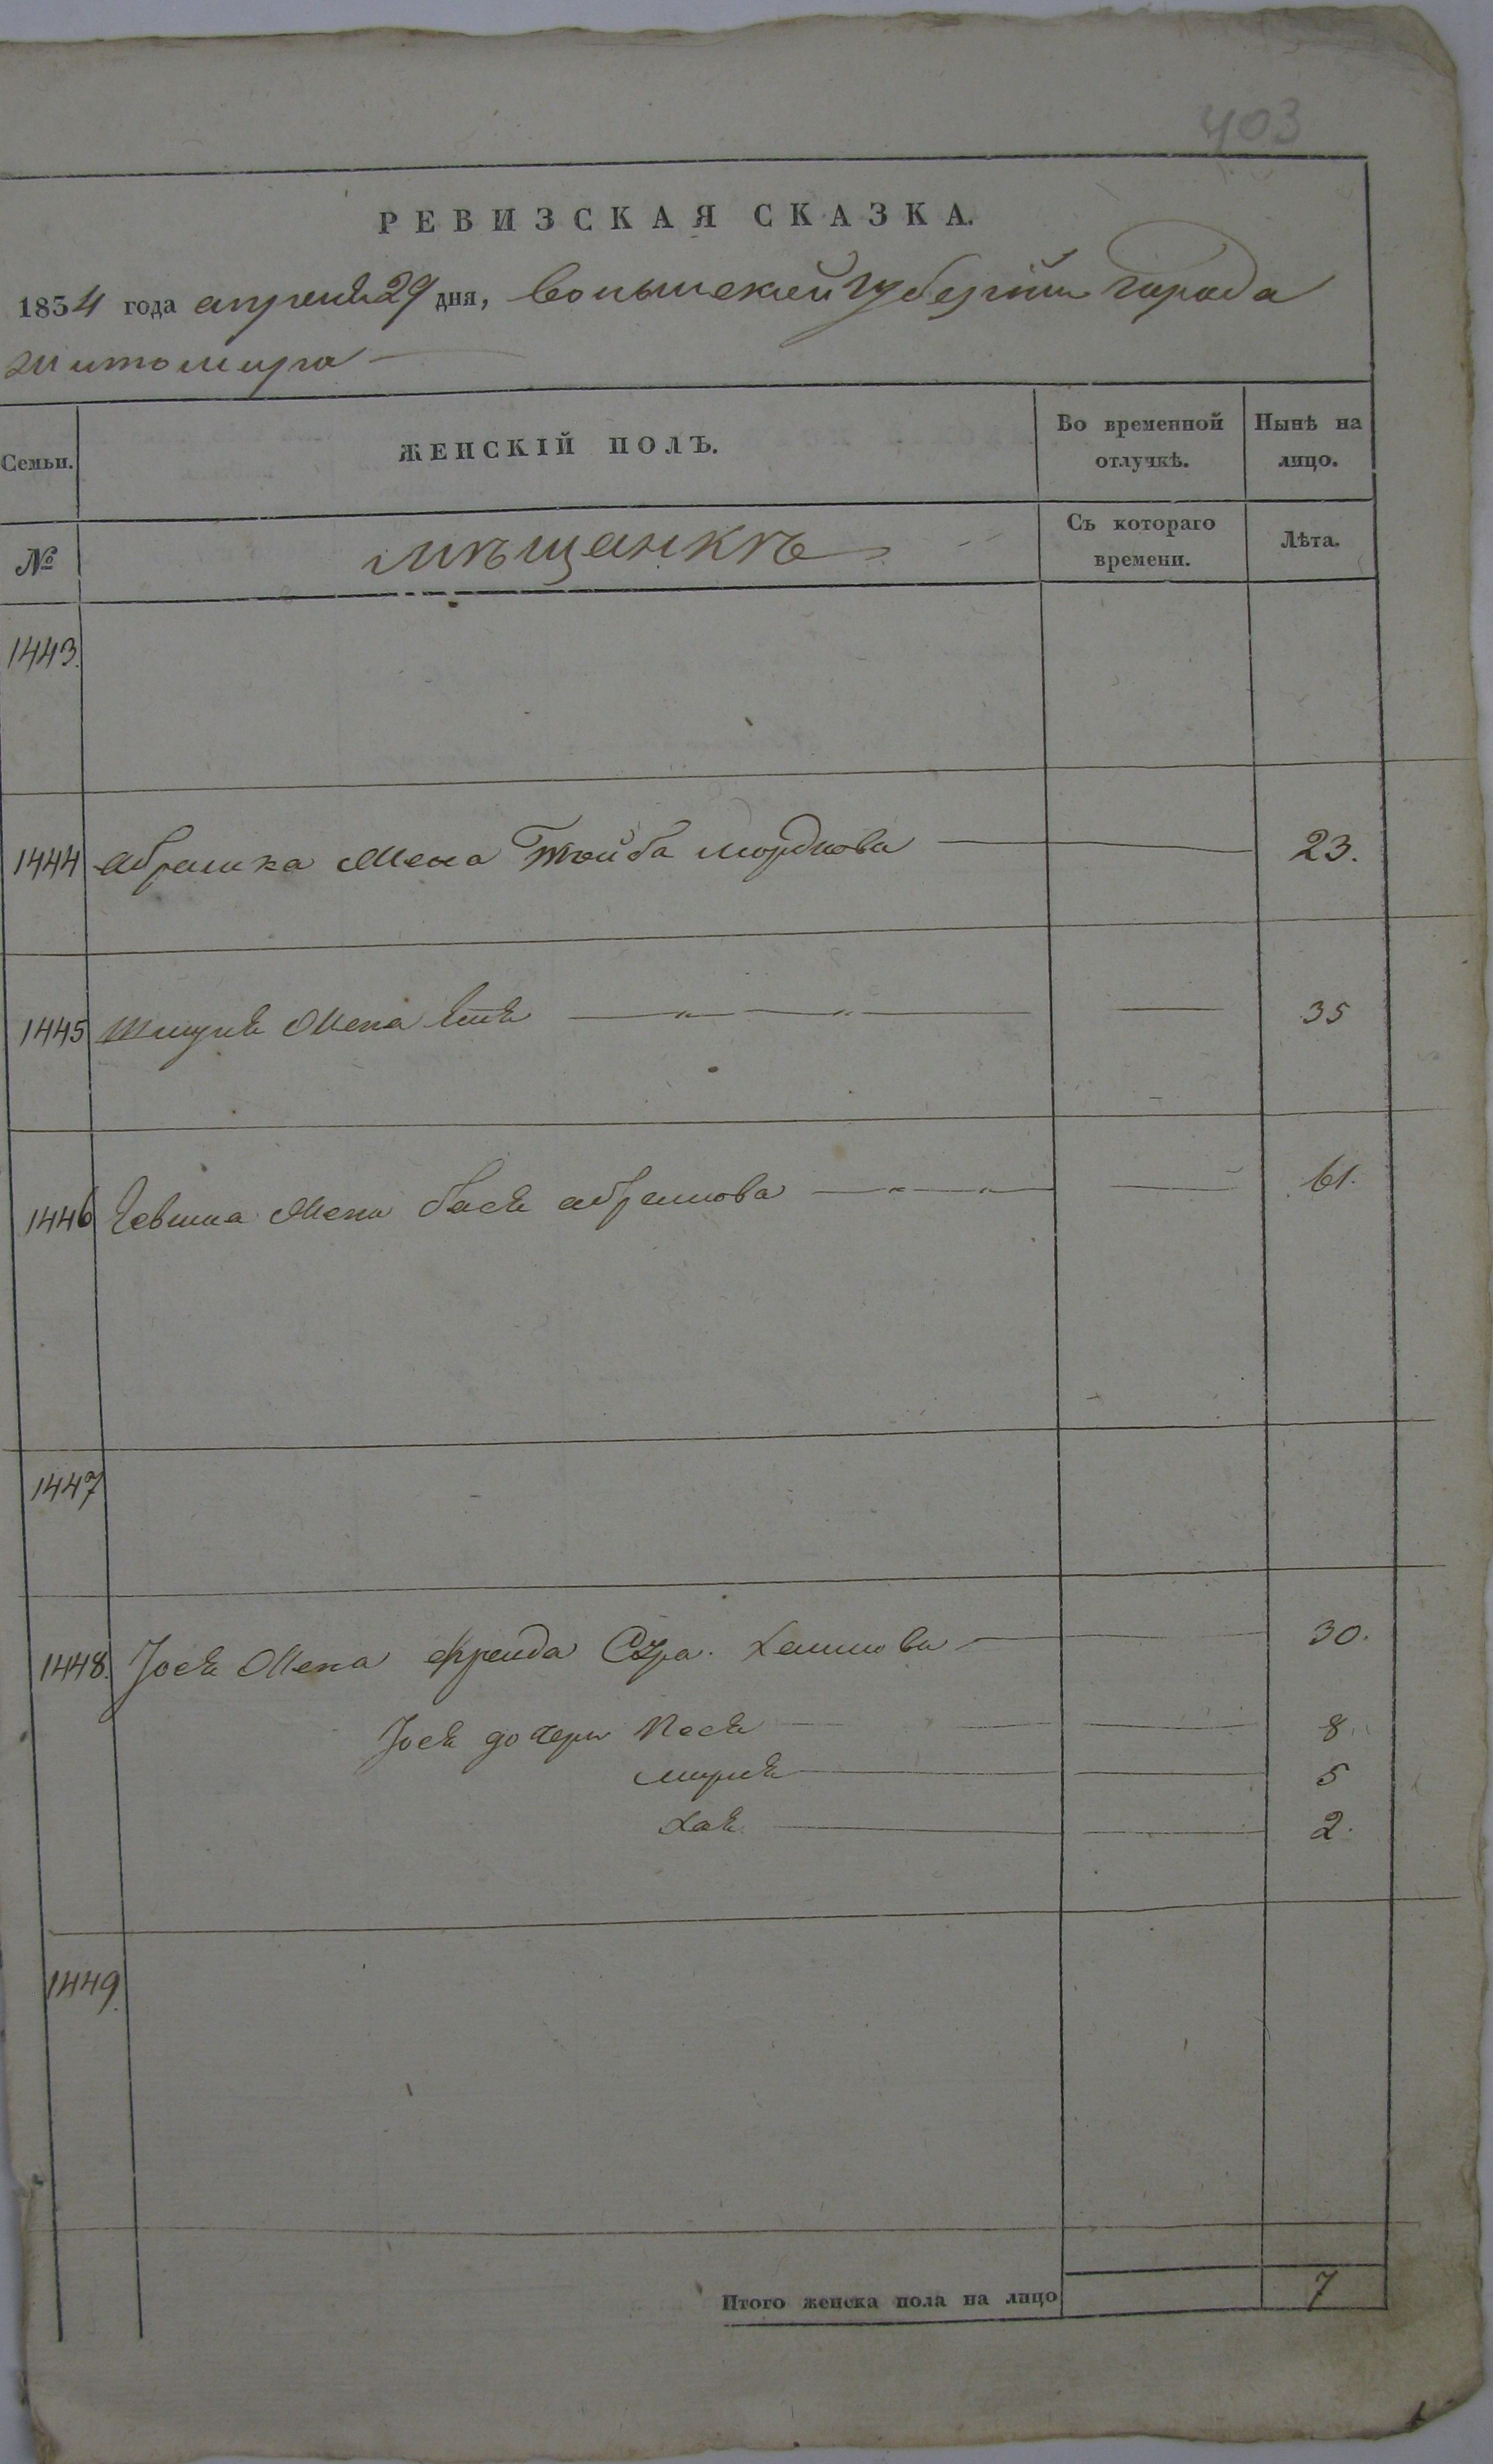 403
РЕВИЗСКАЯ СКАЗКА.
1834 года апреля 29 дня, Волынской губернии города
Житомира
Семьи.
ЖЕНСКІЙ ПОЛЪ.
Во временной отлучкѣ.
Нынѣ на лицо.
№
мѣщанкѣ
Съ котораго времени.
Лѣта.
1443.
1444 Абрамка жена Тойба мордкова 23.
1445 жена 35
1446 жена бася абрамова 61.
1447
1448. Іося жена фрейда Сура Хаимова 30.
Іося дочери Песя 8
мирля 5
Хая 2.
1449.
Итого женска пола на лицо 7